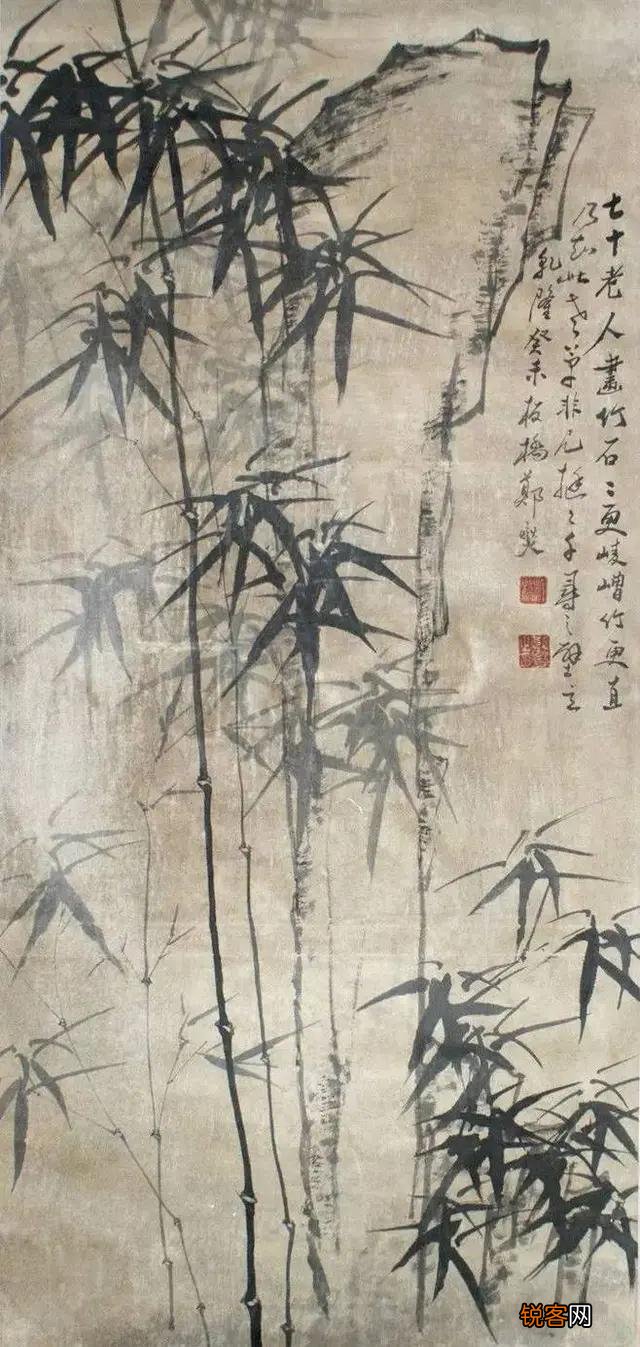 七十老人畫竹石〻更崚嶒竹更直
乃知此老筆非凡挺〻千尋之壁立
乾隆癸未板橋鄭燮
锐客网